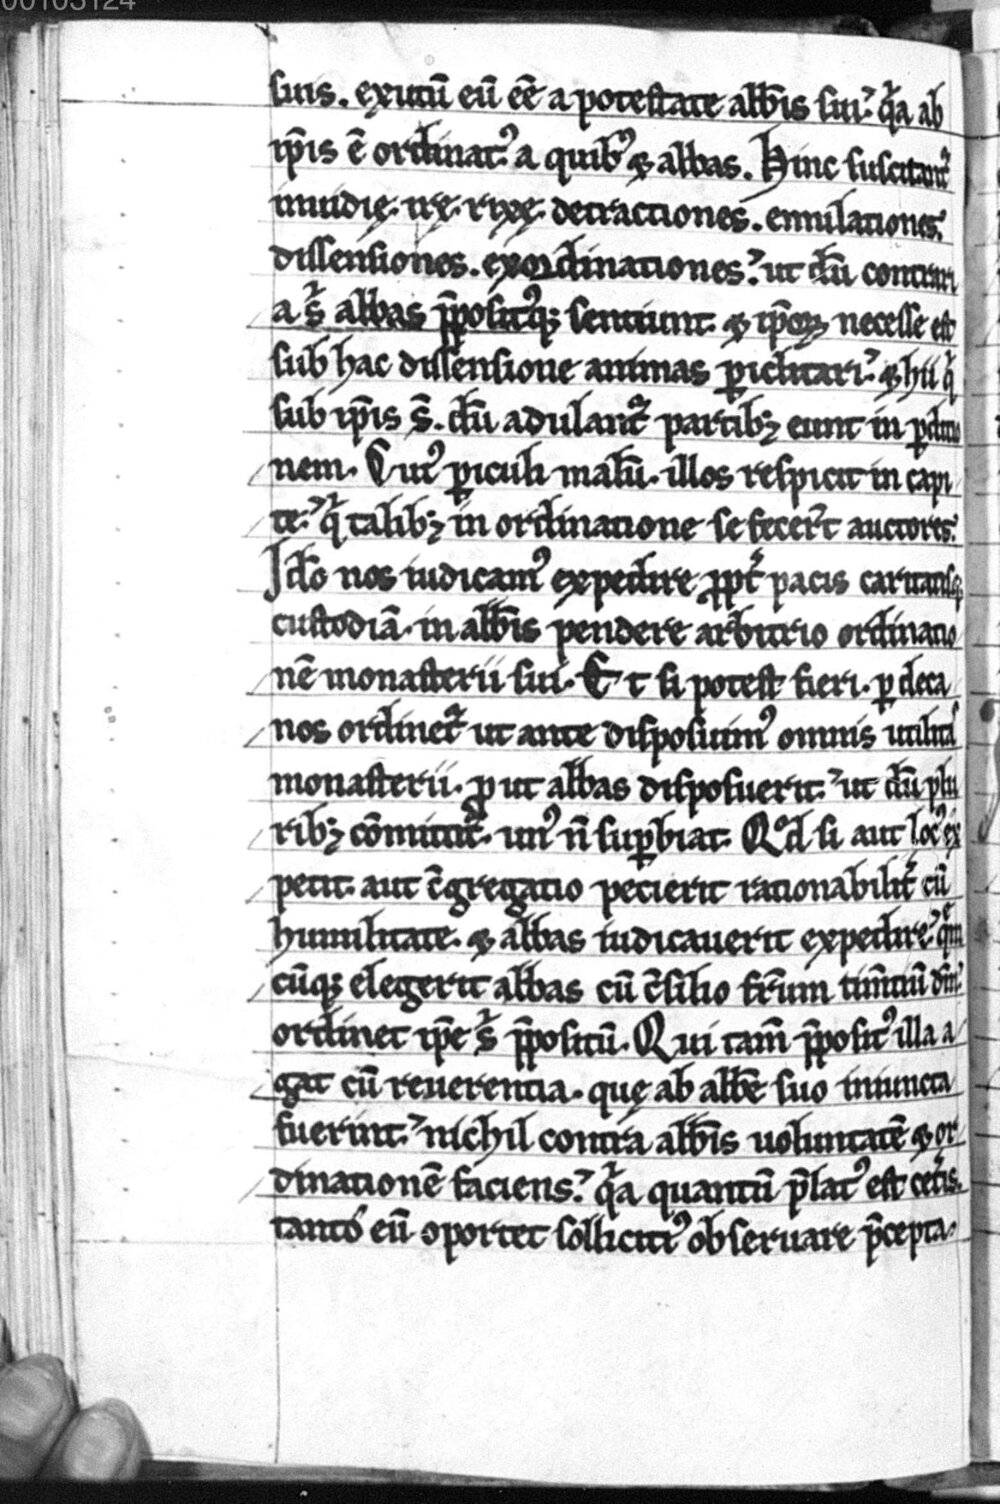 00103124
suis. exutū eū eē a potestate abb̄is sui. qͥa ab
ip̄is ē ordinatꝰ a quibꝰ & abbas. Hinc suscitant᷑
inuidię. irę. rixę. detractiones. emulationes.
dissensiones. exordinationes. ut dū contrari
a s̄ abbas p̄positꝰq; sentiunt. & ip̄oꝝ necesse est
sub hac dissensione animas ꝑiclitari. & hii qͥ
sub ip̄is s̄. dū adulant᷑ partib; eunt in ꝑditio
nem. Cuiꝰ ꝑiculi malū. illos respicit in capi
te. qͥ talib; in ordinatione se fecer̄t auctores.
Idō nos iudicamꝰ expedire ꝓpt̄ pacis caritatisq;
custodiā. in abb̄is pendere arbitrio ordinatio
nē monasterii sui. Et si potest fieri. ꝑ deca
nos ordinet᷑ ut ante disposuimꝰ omnis utilitas
monasterii. ꝓut abbas disposuerit. ut dū plu
rib; cōmittit᷑. unꝰ n̄ suꝑbiat. Qd̄ si aut locꝰ ex
petit. aut c̄gregatio pecierit rationabilit̄ cū
humilitate. & abbas iudicauerit expedire. quē
cūq; elegerit abbas cū c̄silio fr̄um tim̄tiū dm̄.
ordinet ip̄e s̄ p̄positū. Qui tam̄ p̄positꝰ illa a
gat cū reuerentia. quę ab abb̄e suo iniuncta
fuerint. nichil contra abb̄is uoluntatē & or
dinationē faciens. qͣa quantū p̄latꝰ est cet̄is.
tanto eū oportet sollicitiꝰ obseruare p̄cepta.